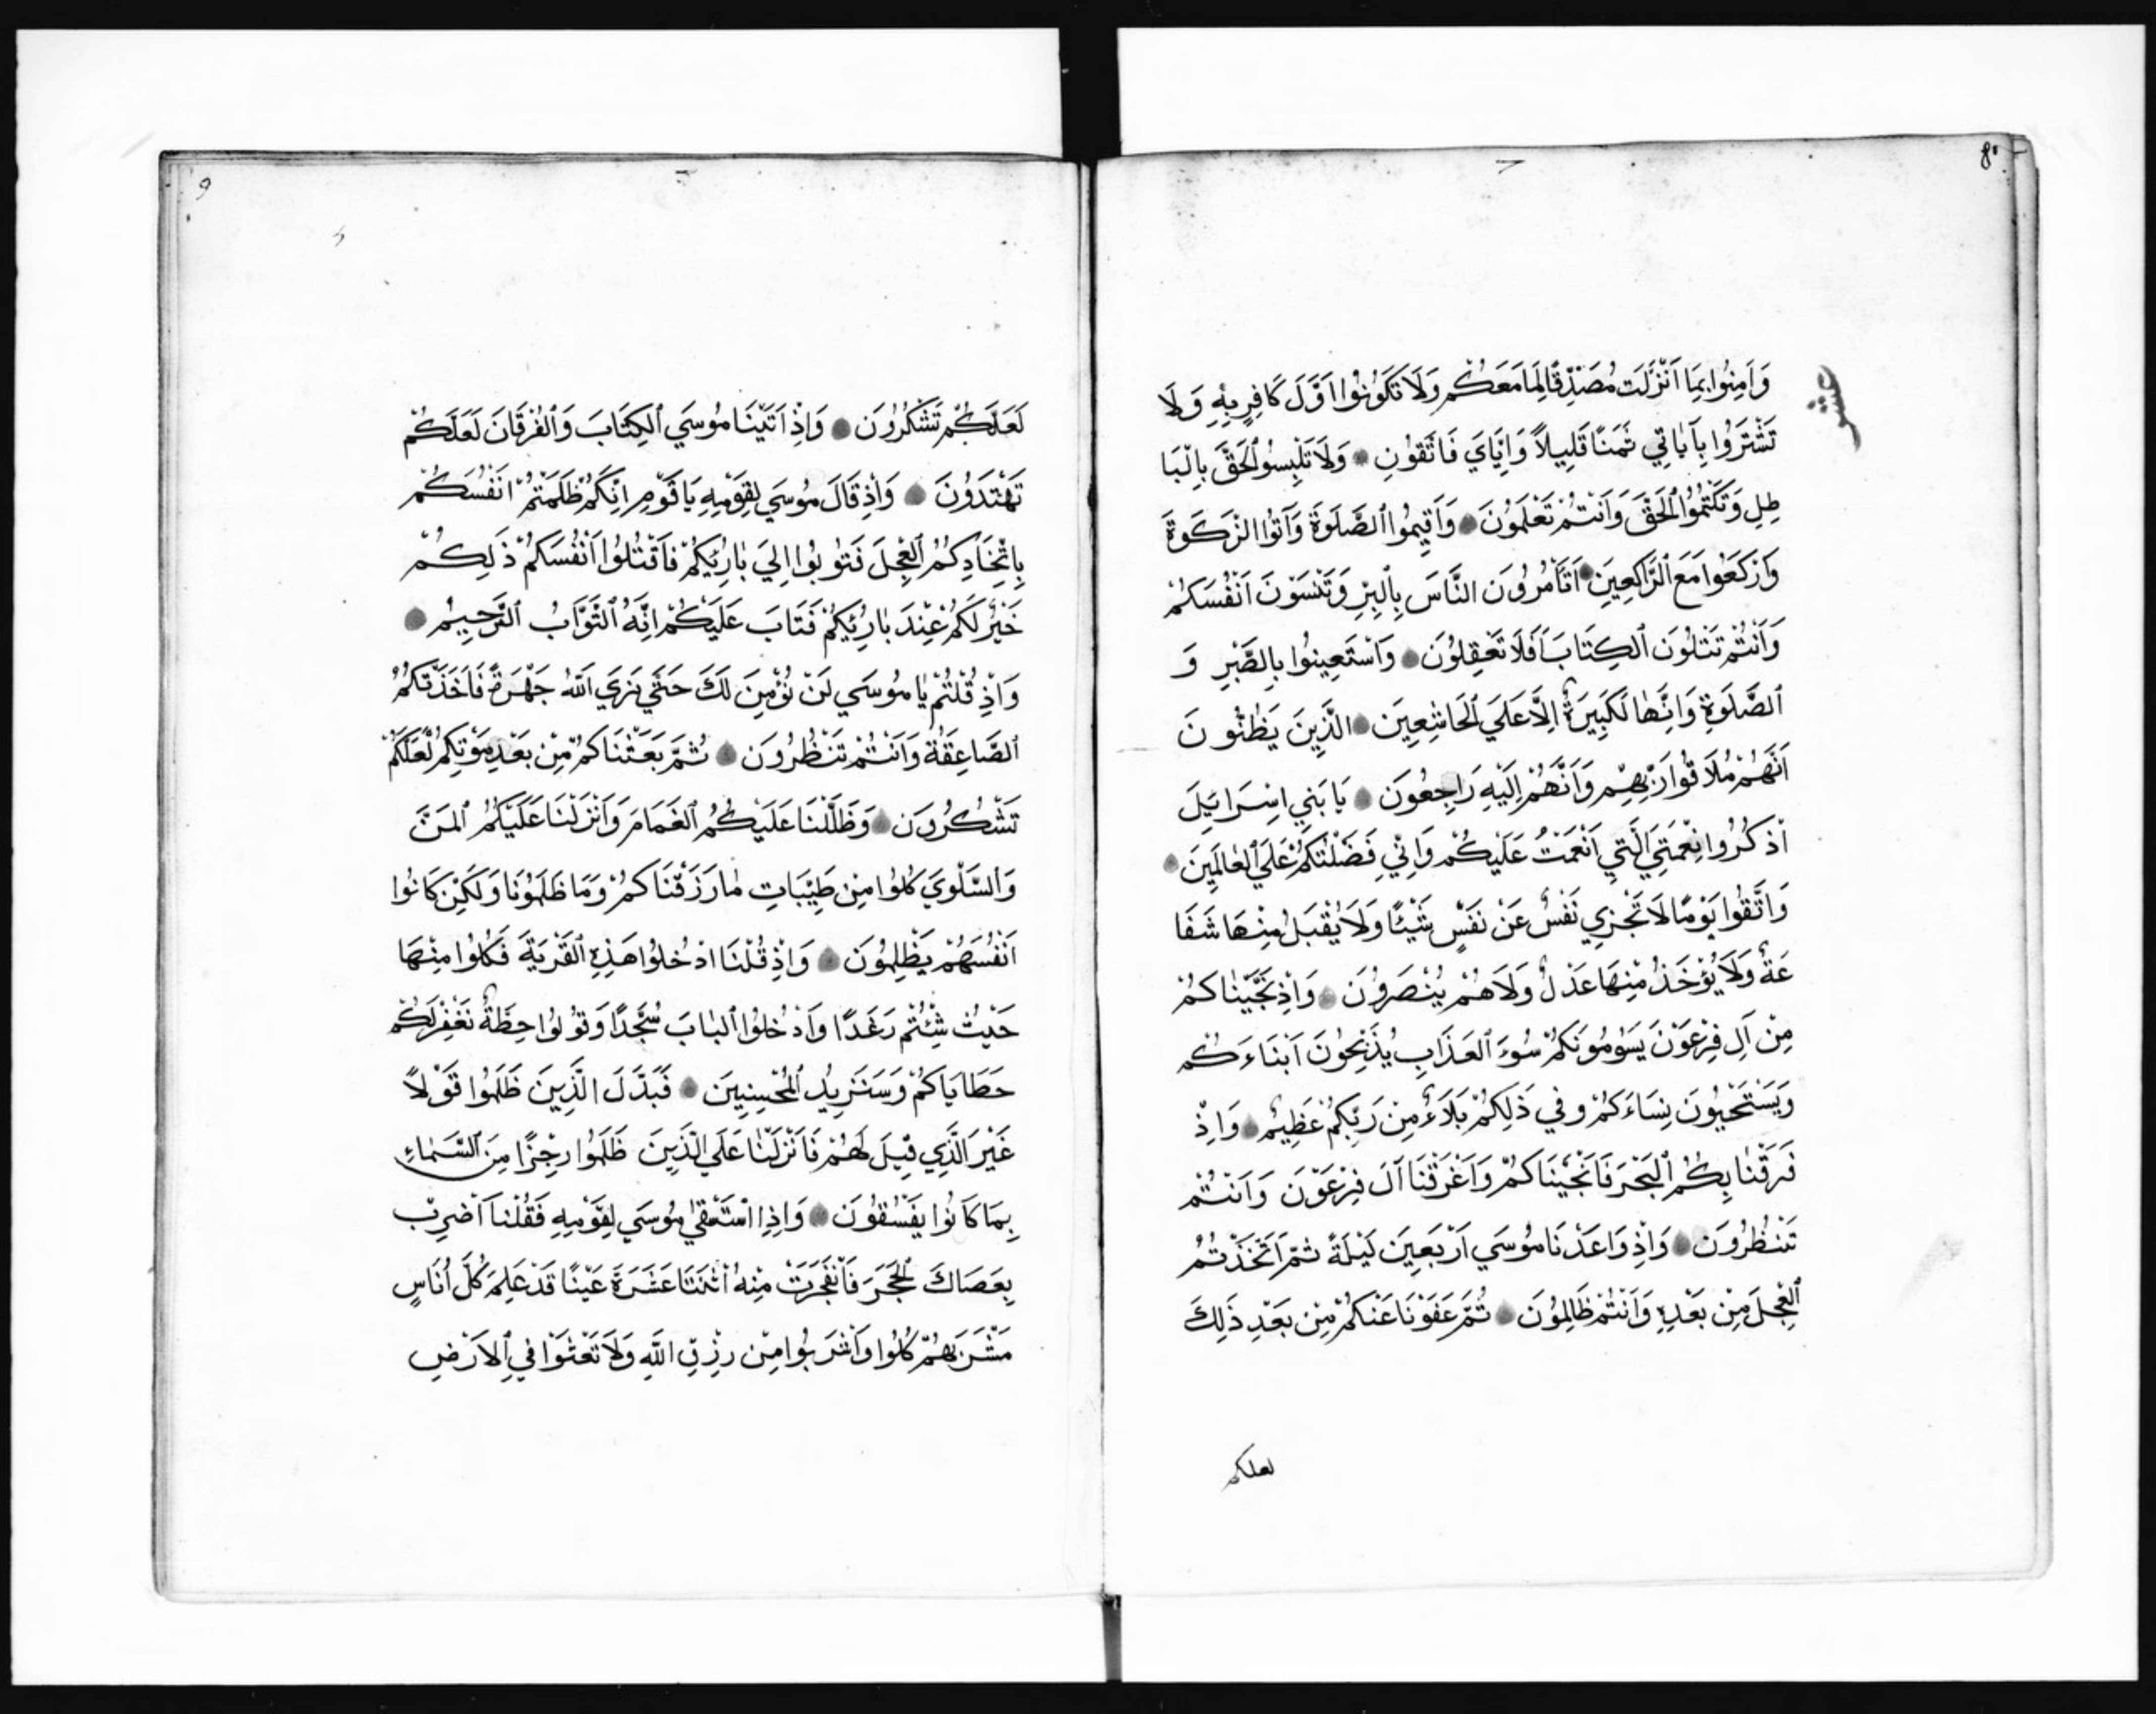 8
عشر
وَآمِنُوا بِمَا اَنْزَلْتُ مُصَدِّقًا لِمَا مَعَكُمْ وَلَا تَكُونُوا اَوَّلَ كَافِرٍ بِهِ وَلَا
تَشْتَرُوا بِآيَاتِي ثَمَنًا قَلِيلًا وَاِيَّايَ فَاتَّقُونِ وَلَا تَلْبِسُوا الْحَقَّ بِالْبَا
طِلِ وَتَكْتُمُوا الْحَقَّ وَاَنْتُمْ تَعْلَمُونَ وَاَقِيمُوا الصَّلَوةَ وَآتُوا الزَّكَوةَ
وَارْكَعُوا مَعَ الرَّاكِعِينَ اَتَأْمُرُونَ النَّاسَ بِالْبِرِّ وَتَنْسَوْنَ اَنْفُسَكُمْ
وَاَنْتُمْ تَتْلُونَ الْكِتَابَ اَفَلَا تَعْقِلُونَ وَاسْتَعِينُوا بِالصَّبْرِ وَ
الصَّلَوةِ وَاِنَّهَا لَكَبِيرَةٌ اِلَّا عَلَي الْخَاشِعِينَ الَّذِينَ يَظُنُّونَ
اَنَّهُمْ مُلَاقُوا رَبِّهِمْ وَاَنَّهُمْ اِلَيْهِ رَاجِعُونَ يَا بَنِي اِسْرَائِيلَ
اذْكُرُوا نِعْمَتِيَ الَّتِي اَنْعَمْتُ عَلَيْكُمْ وَاَنِّي فَضَّلْتُكُمْ عَلَي الْعَالَمِينَ
وَاتَّقُوا يَوْمًا لَا تَجْزِي نَفْسٌ عَنْ نَفْسٍ شَيْئًا وَلَا يُقْبَلُ مِنْهَا شَفَا
عَةٌ وَلَا يُؤْخَذُ مِنْهَا عَدْلٌ وَلَا هُمْ يُنْصَرُونَ وَاِذْ نَجَّيْنَاكُمْ
مِنْ آلِ فِرْعَوْنَ يَسُومُونَكُمْ سُوءَ الْعَذَابِ يُذَبِّحُونَ اَبْنَاءَكُمْ
وَيَسْتَحْيُونَ نِسَاءَكُمْ وَفِي ذَلِكُمْ بَلَاءٌ مِنْ رَبِّكُمْ عَظِيمٌ وَاِذْ
فَرَقْنَا بِكُمُ الْبَحْرَ فَاَنْجَيْنَاكُمْ وَاَغْرَقْنَا آلَ فِرْعَوْنَ وَاَنْتُمْ
تَنْظُرُونَ وَاِذْ وَاعَدْنَا مُوسَي اَرْبَعِينَ لَيْلَةً ثُمَّ اتَّخَذْتُمُ
الْعِجْلَ مِنْ بَعْدِهِ وَاَنْتُمْ ظَالِمُونَ ثُمَّ عَفَوْنَا عَنْكُمْ مِنْ بَعْدِ ذَلِكَ
لعلكم
9
لَعَلَّكُمْ تَشْكُرُونَ وَاِذْ اَتَيْنَا مُوسَي الْكِتَابَ وَالْفُرْقَانَ لَعَلَّكُمْ
تَهْتَدُونَ وَاِذْ قَالَ مُوسَي لِقَوْمِهِ يَا قَوْمِ اِنَّكُمْ ظَلَمْتُمْ اَنْفُسَكُمْ
بِاتِّخَاذِكُمُ الْعِجْلَ فَتُوبُوا اِلَي بَارِئِكُمْ فَاقْتُلُوا اَنْفُسَكُمْ ذَلِكُمْ
خَيْرٌ لَكُمْ عِنْدَ بَارِئِكُمْ فَتَابَ عَلَيْكُمْ اِنَّهُ التَّوَّابُ الرَّحِيمُ
وَاِذْ قُلْتُمْ يَا مُوسَي لَنْ نُؤْمِنَ لَكَ حَتَّي نَرَي اللّٰهَ جَهْرَةً فَاَخَذَتْكُمُ
الصَّاعِقَةُ وَاَنْتُمْ تَنْظُرُونَ ثُمَّ بَعَثْنَاكُمْ مِنْ بَعْدِ مَوْتِكُمْ لَعَلَّكُمْ
تَشْكُرُونَ وَظَلَّلْنَا عَلَيْكُمُ الْغَمَامَ وَاَنْزَلْنَا عَلَيْكُمُ الْمَنَّ
وَالسَّلْوَي كُلُوا مِنْ طَيِّبَاتِ مَا رَزَقْنَاكُمْ وَمَا ظَلَمُونَا وَلَكِنْ كَانُوا
اَنْفُسَهُمْ يَظْلِمُونَ وَاِذْ قُلْنَا ادْخُلُوا هَذِهِ الْقَرْيَةَ فَكُلُوا مِنْهَا
حَيْثُ شِئْتُمْ رَغَدًا وَادْخُلُوا الْبَابَ سُجَّدًا وَقُولُوا حِطَّةٌ نَغْفِرْ لَكُمْ
خَطَايَاكُمْ وَسَنَزِيدُ الْمُحْسِنِينَ فَبَدَّلَ الَّذِينَ ظَلَمُوا قَوْلًا
غَيْرَ الَّذِي قِيلَ لَهُمْ فَاَنْزَلْنَا عَلَي الَّذِينَ ظَلَمُوا رِجْزًا مِنَ السَّمَاءِ
بِمَا كَانُوا يَفْسُقُونَ وَاِذِ اسْتَسْقَي مُوسَي لِقَوْمِهِ فَقُلْنَا اضْرِبْ
بِعَصَاكَ الْحَجَرَ فَانْفَجَرَتْ مِنْهُ اثْنَتَا عَشَرَةَ عَيْنًا قَدْ عَلِمَ كُلُّ اُنَاسٍ
مَشْرَبَهُمْ كُلُوا وَاشْرَبُوا مِنْ رِزْقِ اللّٰهِ وَلَا تَعْثَوْا فِي الْاَرْضِ